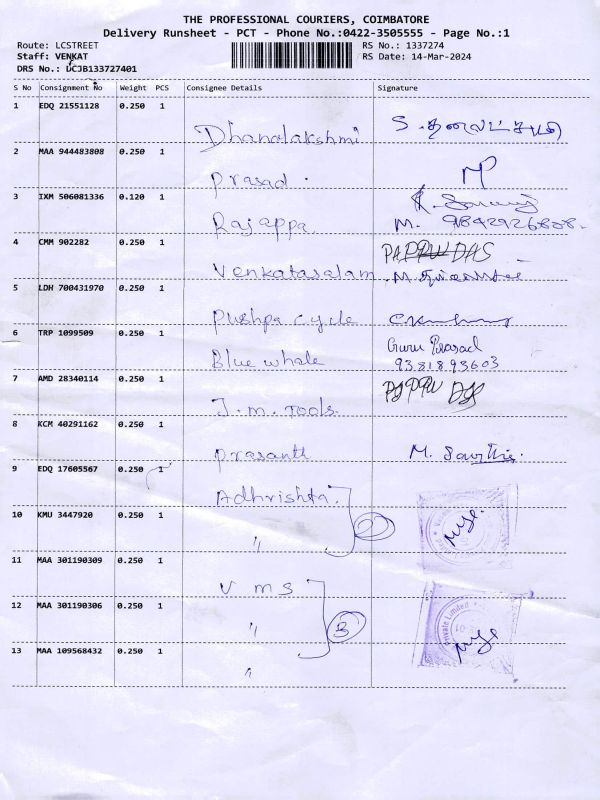 THE PROFESSIONAL COURIERS, COIMBATORE
Delivery Runsheet - PCT - Phone No.:0422-3505555 - Page No.:1
Route: LCSTREET
RS No.: 1337274
Staff: VENKAT
RS Date: 14-Mar-2024
DRS No.: UCJB133727401
S No Consignment No Weight PCS Consignee Details Signature
1 EDQ 21551128 0.250 1
Dhanalakshmi
2 MAA 944483808 0.250 1
Prasad.
3 IXM 506081336 0.120 1
Rajappa M. 9842926808.
4 CMM 902282 0.250 1 PAPPU DAS
Venkatasalam
5 LDH 700431970 0.250 1
Pushpa cycle
6 TRP 1099509 0.250 1 Guru Prasad
Blue whale 9381893603
7 AMD 28340114 0.250 1 PAPPU DAS
J.m. Tools.
8 KCM 40291162 0.250 1
Prasanth M.
9 EDQ 17605567 0.250 1
Adhrishta.
10 KMU 3447920 0.250 1 2
"
11 MAA 301190309 0.250 1
V m s
12 MAA 301190306 0.250 1 3
" Private Limited
13 MAA 109568432 0.250 1
"